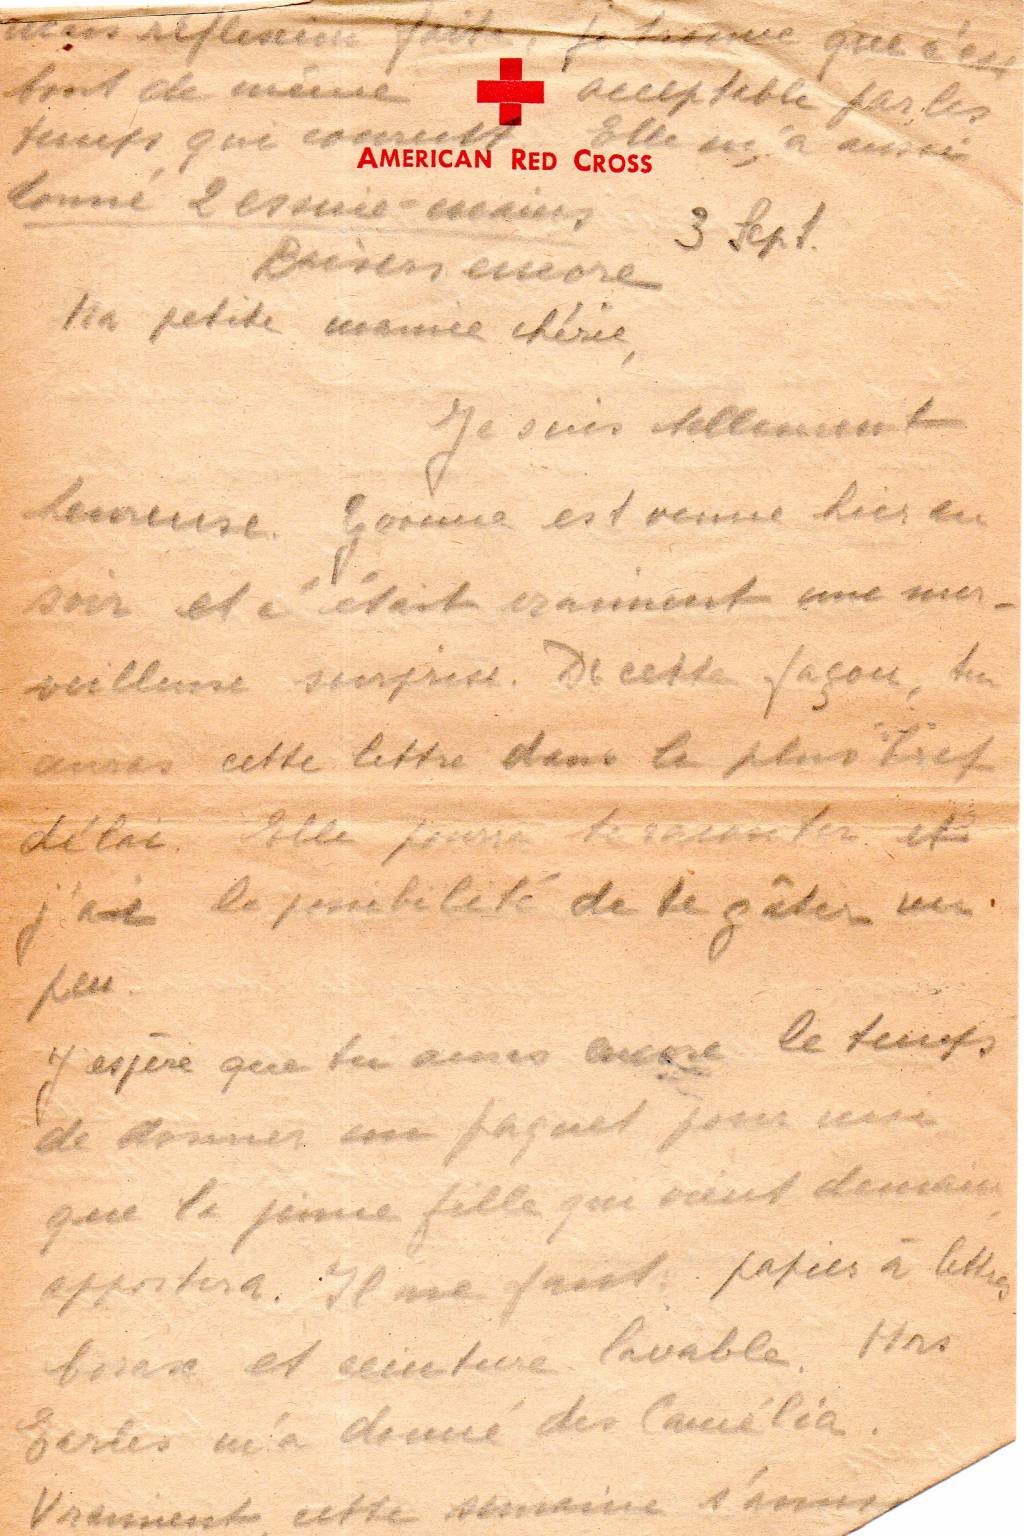 mais réflexion faite, je trouve que c'est
tout de même acceptable par les
temps qui courent. Elle m'a aussi
donné 2 essuie-mains
Baisers encore
AMERICAN RED CROSS
3 Sept.
Ma petite mamie chérie,
Je suis tellement
heureuse. Yvonne est venue hier au
soir et c'était vraiment une mer-
veilleuse surprise. De cette façon, tu
auras cette lettre dans le plus bref
délai. Elle pourra te raconter et
j'ai la possibilité de te gâter un
peu.
J'espère que tu auras encore le temps
de donner un paquet pour moi
que la jeune fille qui vient demain
apportera. Il me faut: papier à lettres
borax et ceinture lavable. Mrs
m'a donné des Camélia.
Vraiment cette semaine